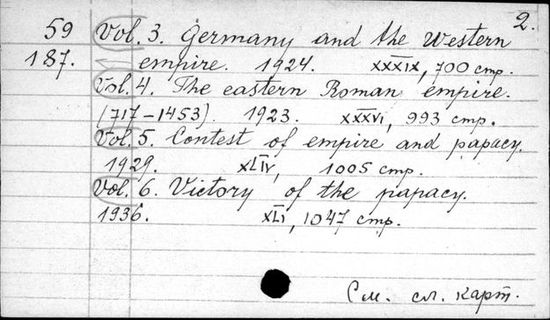 2.
59 Vol. 3. Germany and the Western
187. empire. 1924. XXXIX, 700 стр.
Vol. 4. The eastern Roman empire.
(717–1453). 1923. XXXVI, 993 стр.
Vol. 5. Contest of empire and papacy.
1929. XLIV, 1005 стр.
Vol. 6. Victory of the papacy.
1936. XLI, 1047 стр.
См. сл. карт.